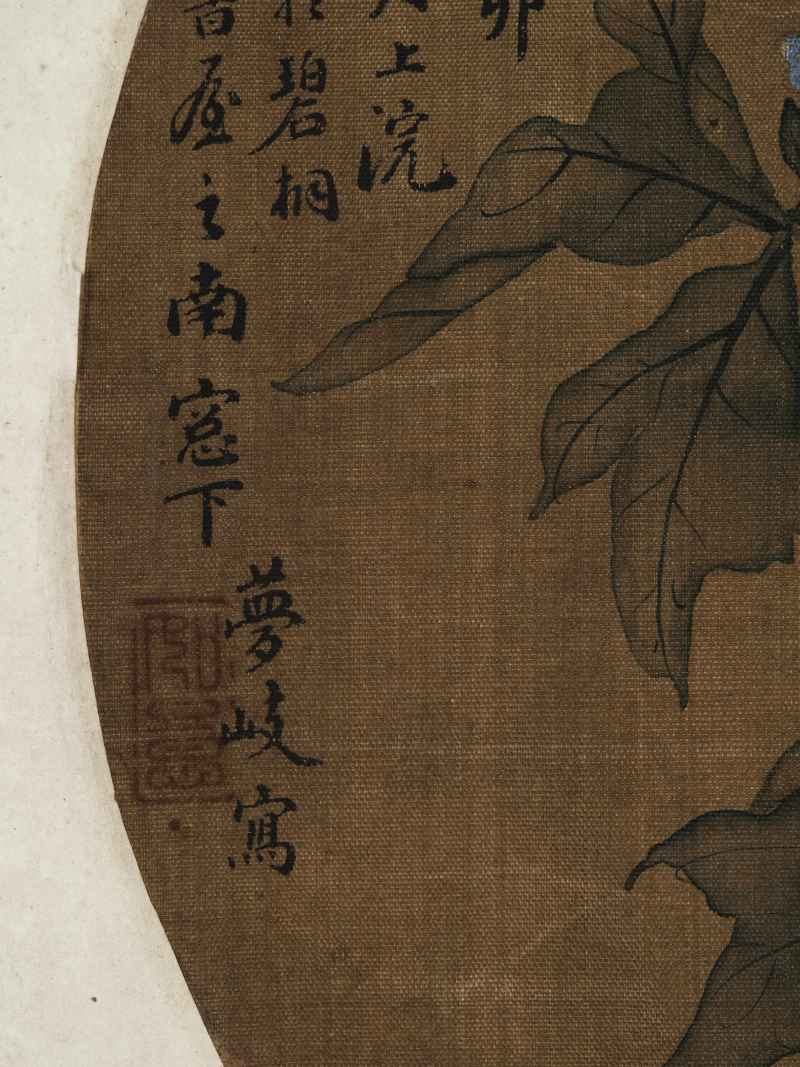 卯
月上浣
於碧梧
書屋之南窓下
夢岐寫